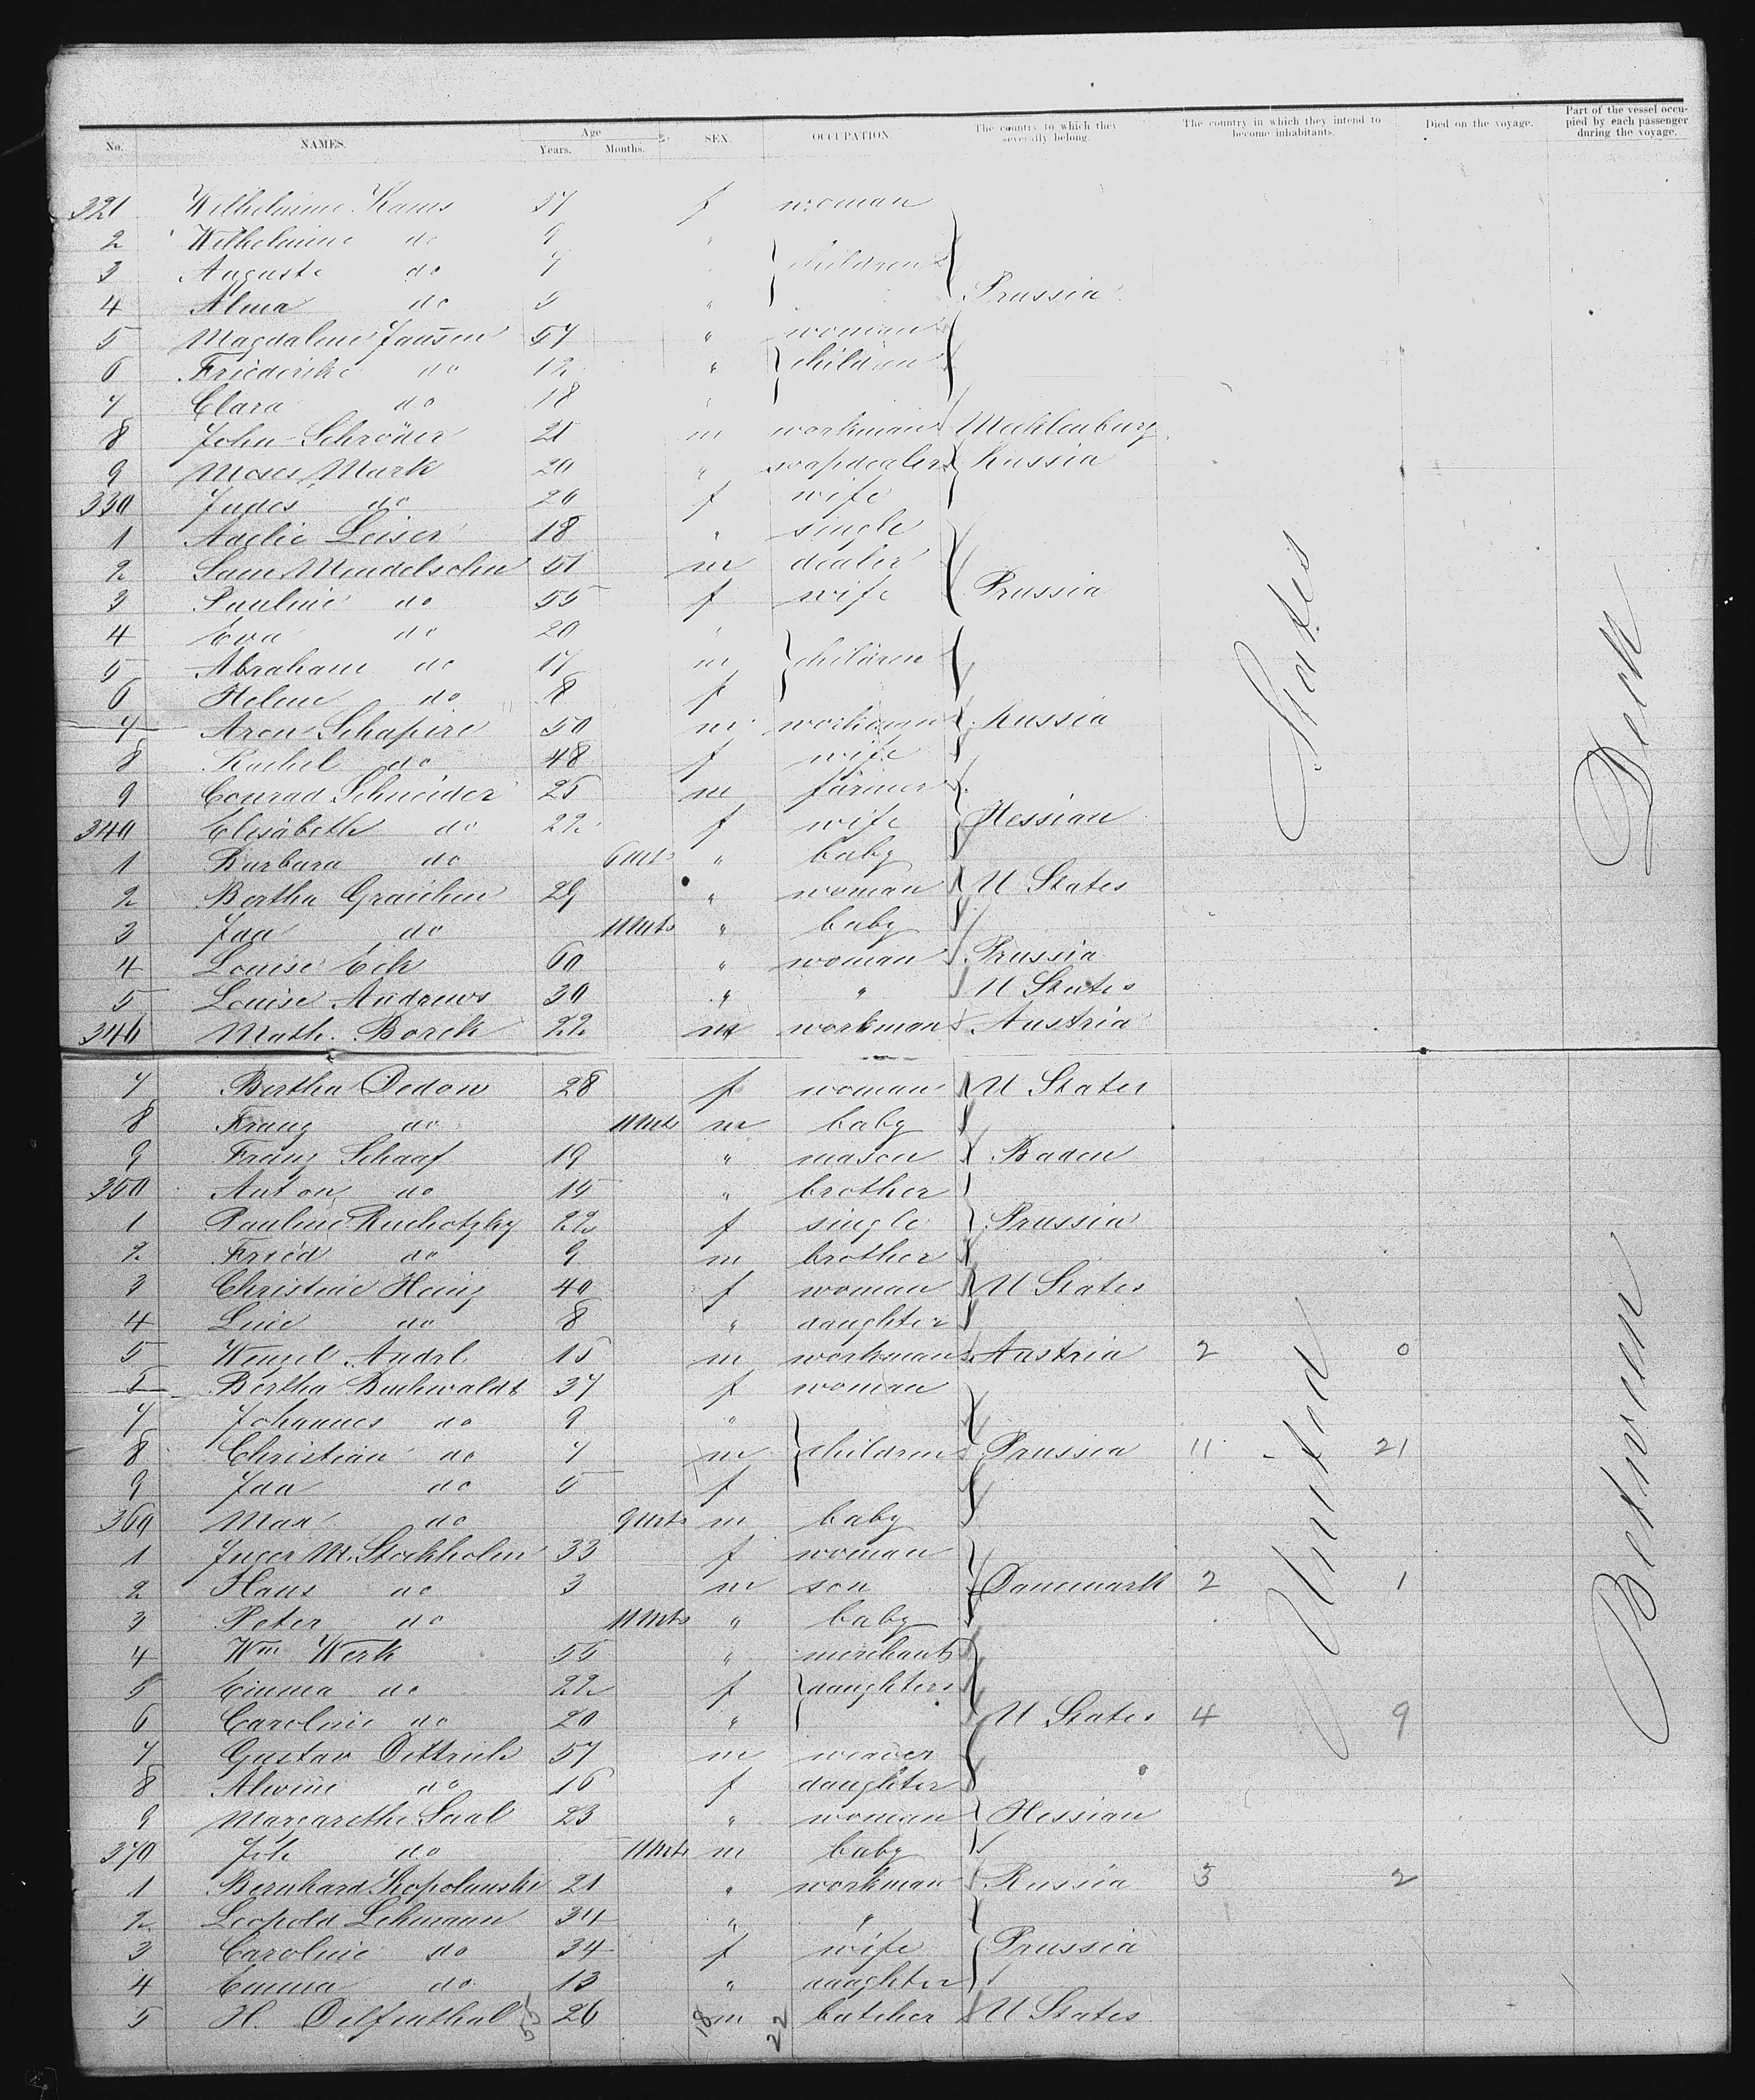 No. NAMES. Age Years. Months. SEX. OCCUPATION The country to which they severally belong. The country in which they intend to become inhabitants. Died on the voyage. Part of the vessel occupied by each passenger during the voyage.
321 Wilhelmine 37 f woman
2 Wilhelmine do 9 "
3 Auguste do 7 children
4 Alma do 5 " Prussia
5 Magdalene Janssen 57 " woman
6 Friederike do 12 " children
7 Clara do 18 "
8 John Schröder 21 m workman Mecklenburg
9 Moses Mark 20 " Russia
330 Judes do 20 f wife
1 Adelie Leiser 18 " single
2 Sam Mendelsohn 51 m dealer
3 Pauline do 55 f wife Prussia
4 Eva do 20 "
5 Abraham do 17 m children
6 Helene do 8 f
7 Aron Schapire 50 m workman Russia
8 Rachel do 48 f wife
9 Conrad Schneider 25 m farmer
340 Elisabeth do 22 f wife Hessian
1 Barbara do 6 Mts " baby
2 Bertha Graichen 29 " woman U States
3 Ida do 11 Mts " baby
4 Louise Eck 60 " woman Prussia
5 Louise Andrews 30 " " U States
346 Math. Borck 22 m workman Austria
7 Bertha Dedow 28 f woman U States
8 Franz do 11 Mts m baby
9 Franz Schaaf 19 " mason Baden
350 Anton do 15 " brother
1 Pauline Ruchotzky 22 f single Prussia
2 Fried do 9 m brother
3 Christine Heinz 40 f woman U States
4 Line do 8 " daughter
5 Wenzel Andrl 15 m workman Austria 2 0
5 Bertha Buchwaldt 37 f woman
7 Johannes do 9 "
8 Christian do 7 m children Prussia 11 21
9 Ida do 5 f
360 Max do 9 Mts m baby
1 Inger M. Stockholm 33 f woman
2 Hans do 3 m son Danemark 2 1
3 Peter do 11 Mts " baby
4 Wm Werk 55 " merchant
5 Emma do 22 f daughters
6 Caroline do 20 " U States 4 9
7 Gustav Dittrich 57 m weaver
8 Alwine do 16 f daughter
9 Margarethe Saal 23 " woman Hessian
370 Joh do 11 Mts m baby
1 Bernhard Kopolanski 21 " workman Russia 3 2
2 Leopold Lehmann 34 " "
3 Caroline do 34 f wife Prussia
4 Emma do 13 " daughter
5 H. Delfenthal 26 m butcher U States
55 18 22
United States
Between Deck